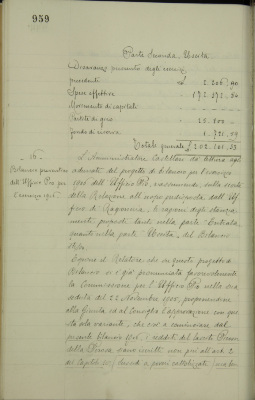 959
Parte Seconda Uscita
Disavanzo presunto degli esercizi
precedenti £ 2.206,90
Spese effettive 172.571,80
Movimento di capitali
Partite di giro
Fondo di riserva 1.721,
Totale generale £ 202.101,53
16.
Bilancio preventivo
dell'Ufficio Pio per
l'esercizio 1906
L'Amministratore Castellani dà lettura agli
adunati del progetto di bilancio per l'esercizio
1906 dell'Ufficio Pio, riassumendo, sulla scorta
della Relazione all'uopo predisposta dall'Uf-
ficio di Ragioneria, le ragioni degli stanzia-
menti proposti tanto nella parte "Entrata"
quanto nella parte "Uscita" del Bilancio
stesso.
Segnala il Relatore che su questo progetto di
Bilancio si è già pronunciata favorevolmente
la Commissione per l'Ufficio Pio nella sua
seduta del 22 Novembre 1905, proponendone
alla Giunta ed al Consiglio l'approvazione con que-
sta sola variante, che cioè a cominciare dal
presente bilancio 1906, i redditi del
della siano iscritti non più all'art. 2
del Capitolo